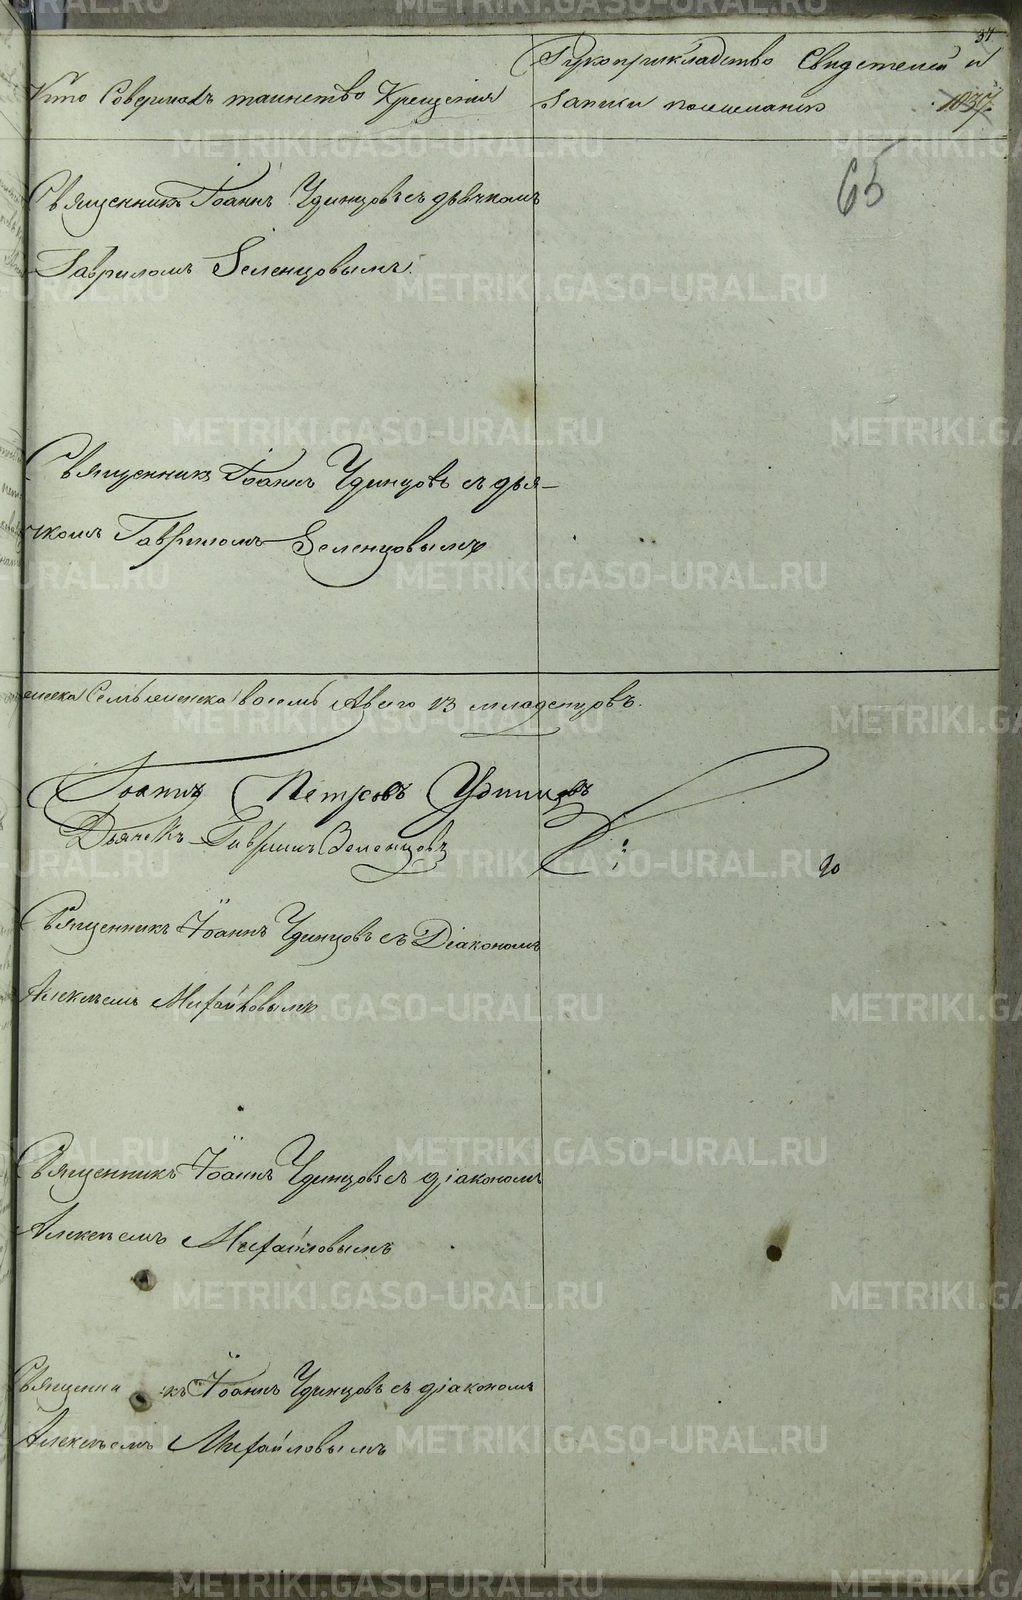 34
Рукоприкладство Свидетелей и
Кто Совершалъ таинство Крещенія
записи по желанію
1037
65
Священникъ Іоаннъ Удинцовъ съ дьячкомъ
Гавриломъ Зеленцовымъ.
Священникъ Іоаннъ Удинцовъ съ дья-
чкомъ Гавриломъ Зеленцовымъ
женска восемь Авсего 13 младенцовъ.
Іоаннъ Петровъ Удинцовъ
Дьячекъ Гаврилъ Зеленцовъ
Священникъ Іоаннъ Удинцовъ съ Діакономъ
Алексѣемъ Михайловымъ
Священникъ Іоаннъ Удинцовъ съ діакономъ
Алексѣемъ Михайловымъ
Священникъ Іоаннъ Удинцовъ съ діакономъ
Алексѣемъ Михайловымъ
METRIKI.GASO-URAL.RU